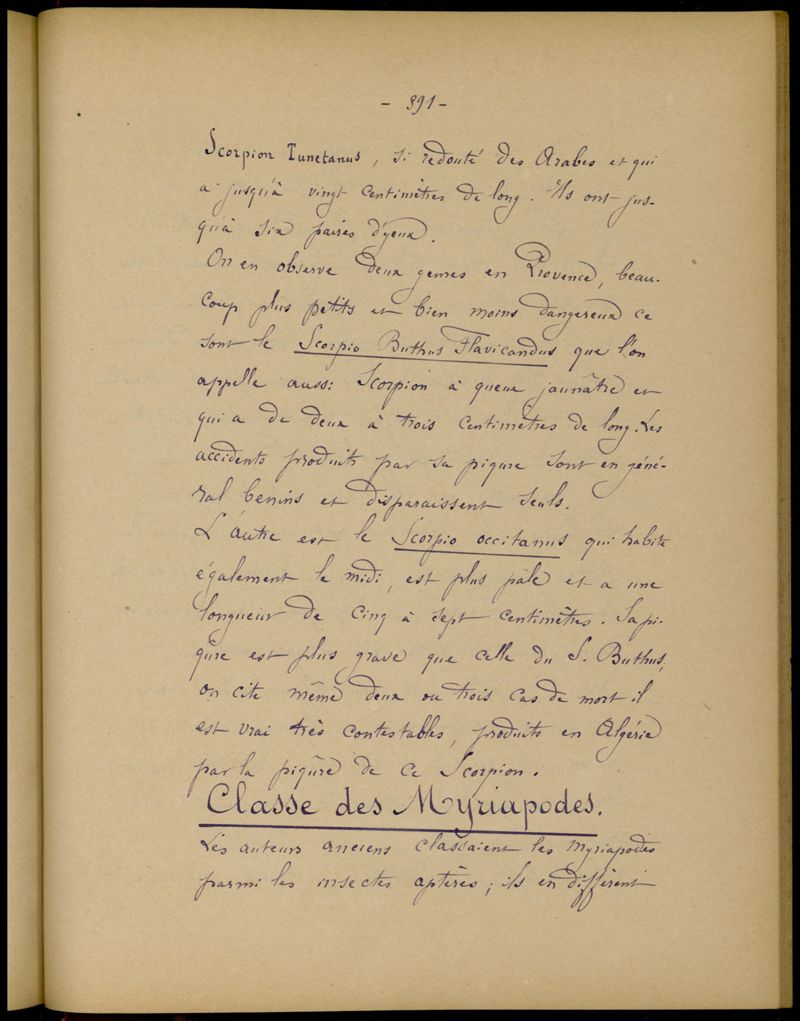 - 391 -
Scorpion Tunetanus, si redouté des Arabes et qui
a jusqu'à vingt centimètres de long. Ils ont jus-
qu'à six paires d'yeux.
On en observe deux genres en Provence, beau-
coup plus petits et bien moins dangereux ce
sont le Scorpio Buthus Flavicandus que l'on
appelle aussi Scorpion à queue jaunâtre et
qui a de deux à trois centimètres de long. Les
accidents produits par sa piqure sont en géné-
ral benins et disparaissent seuls.
L'autre est le Scorpio occitanus qui habite
également le midi, est plus pâle et a une
longueur de cinq à sept centimètres. Sa pi-
qûre est plus grave que celle du S. Buthus,
on cite même deux ou trois cas de mort il
est vrai très contestables, produits en Algérie
par la piqûre de ce Scorpion.
Classe des Myriapodes.
Les auteurs anciens classaient les Myriapodes
parmi les insectes aptères; ils en diffèrent